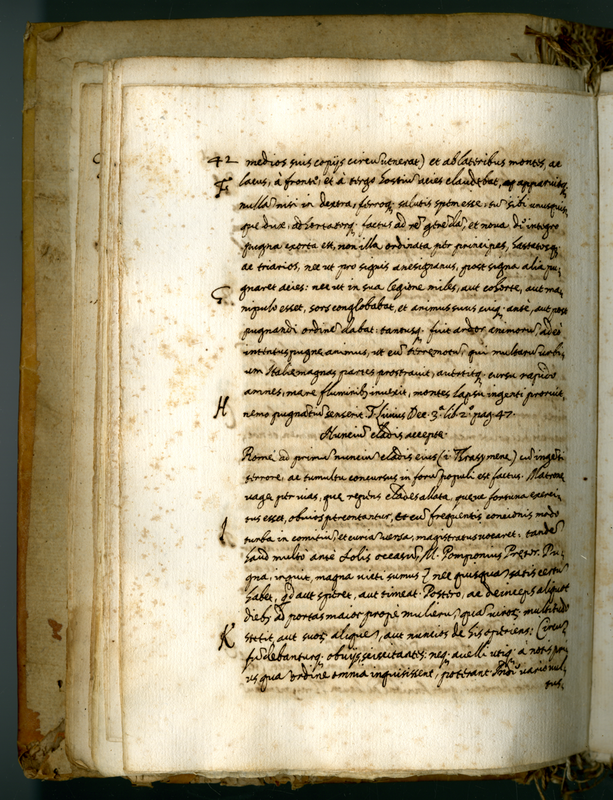 42 medios suis copijs circũ venerat) et ab lateribus montes, ac
F lacus, à fronte, et à tergo hostiũ acies claudebat, apparuitq.
nullã nisi in dextra, ferroq. salutis spem esse, tũ sibi unusquis
que dux, adhortatorq. factus ad rẽ gerẽdã, et nova de integro
pugna exorta est, non illa ordinata per principes, hastatosq.
ac triarios, nec ut pro signis antesignanus, post signa alia pu,
gnaret acies: nec ut in sua legione miles, aut cohorte, aut ma,
G nipulo esset, sors conglobabat, et animus suus cuiq. ante, aut post
pugnandi ordinẽ dabat. tantusq. fuit ardor animorũ, adeò
intentus pugnæ animus, ut eũ terremotũ qui multarũ urbi,
um Italiæ magnas partes prostravit, avertitq. cursu rapido
amnes, mare fluminib. invexit, montes lapsu ingenti proruit,
H nemo pugnãtiũ senserit. T. Livius Dec. 3.ª lib. 2.º pag. 47.
Nunciũ cladis accepte
Romæ ad primũ nunciũ cladis eius (i Thrasymene) cũ ingẽti
terrore, ac tumultu concursus in forũ populi est factus. Matronæ
vagæ per vias, que repens clades allata, queve fortuna exerci,
tus esset, obvios percontantur, et cũ frequentis concionis modo
I turba in comitiũ et curiã versa, magistratus vocaret, tandẽ
haud multo ante solis occasũ, M. Pomponius Pretor. Pu,
gna, inquit, magna victi sumus
habet, qd aut speret, aut timeat. Postero, ac deinceps aliquot
dieb. ad portas maior prope mulierũ quã virorũ multitudo
K stetit, aut suorũ aliquẽ, aut nuncios de his opperiens: Circũ,
fũdebanturq. obvijs sciscitantes: neq. avelli utiq. a notis priu
us quã ordine omnia inquisissent, poterant. Inde varios vul,
tus,